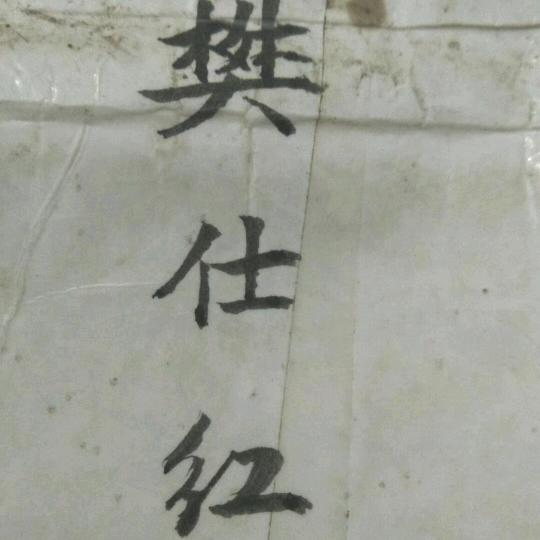 樊仕红